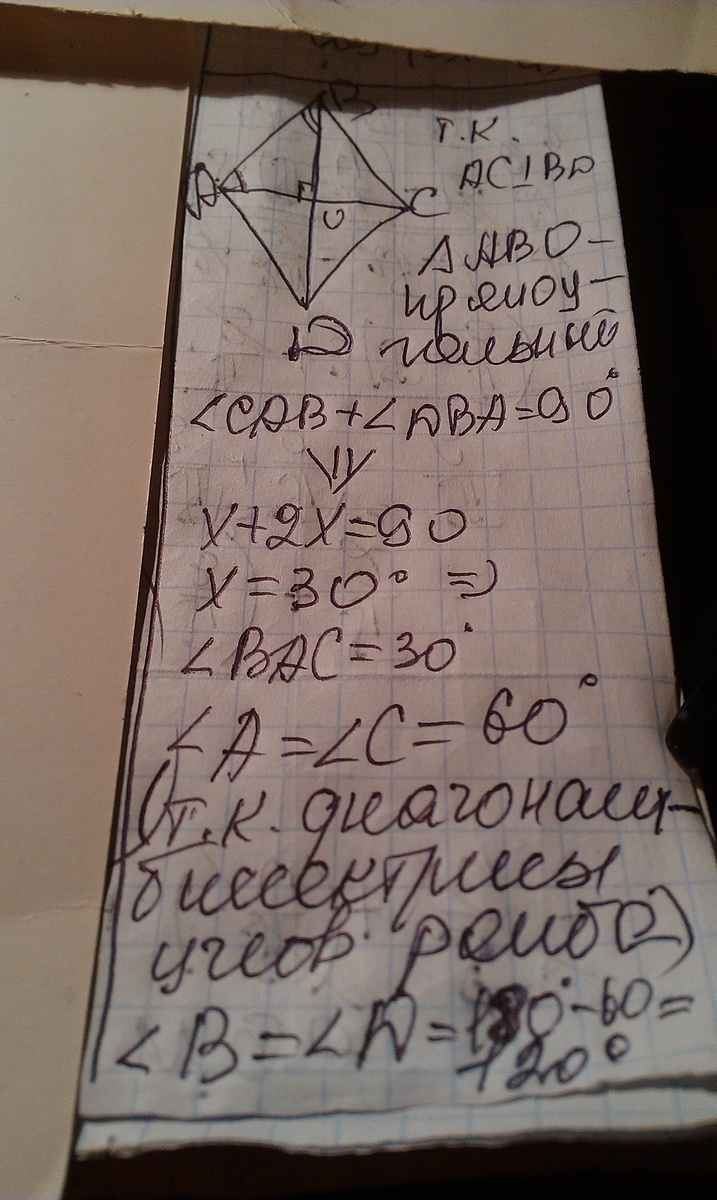 B
A
C
O
D
т.к.
AC⊥BD
△ABO-
прямоу-
гольный
∠CAB+∠DBA=90°
x+2x=90
x=30° =>
∠BAC=30°
∠A=∠C=60°
(т.к. диагонали-
биссектрисы
углов ромба)
∠B=∠D=180°-60=
120°